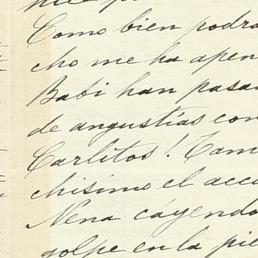 Como bien podra
cho me ha apen
Babi han pasa
de angustias con
Carlitos! Tam
chisimo el acc
Nena cayendo
golpe en la pie